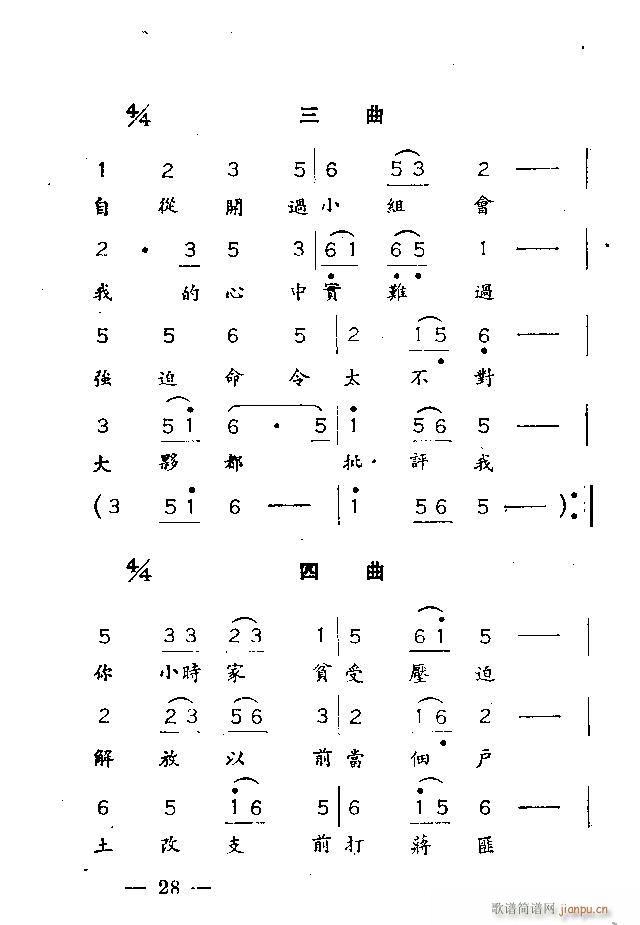 4/4 三 曲
1 2 3 5 | 6 5 3 2 — |
自 從 開 過 小 組 會
2 · 3 5 3 | 6 1 6 5 1 — |
我 的 心 中 實 難 過
5 5 6 5 | 2 1 5 6 — |
強 迫 命 令 太 不 對
3 5 1 6 · 5 | 1 5 6 5 — |
大 夥 都 批 評 我
(3 5 1 6 — | 1 5 6 5 — ) :||
4/4 四 曲
5 3 3 2 3 1 | 5 6 1 5 — |
你 小 時 家 貧 受 壓 迫
2 2 3 5 6 3 | 2 1 6 2 — |
解 放 以 前 當 佃 戶
6 5 1 6 5 | 6 1 5 6 — |
土 改 支 前 打 蔣 匪
— 28 —
歌谱简谱网
jianpu.cn